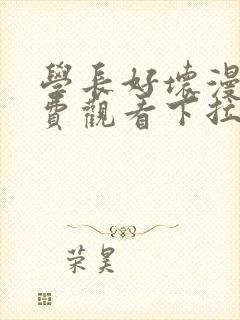 學長好壞漫
費觀看下拉
荣昊